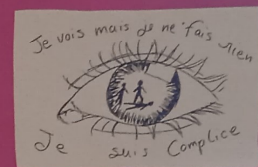 Je vois mais je ne fais rien
Je suis Complice